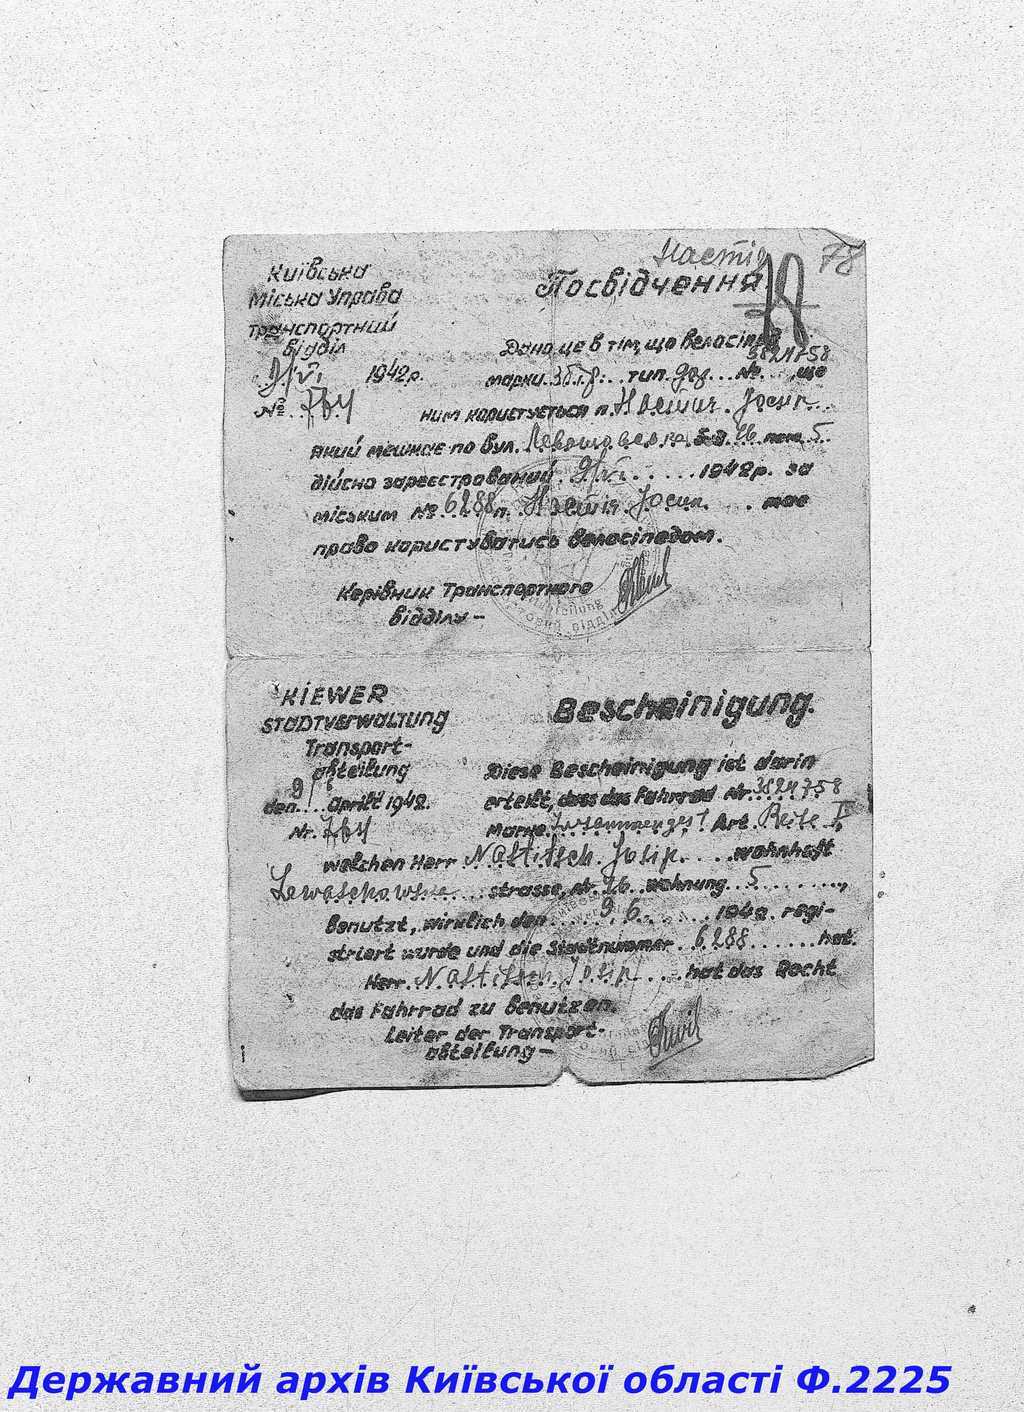 78
Посвідчення
Київська
Міська Управа
транспортний
відділ
9/VI 1942 р.
№ 784
Дано це в тім, що велосіпед
марки Зб.і.г. тип дор. № 3824758, що
ним користується п. Настич Йосип
який мешкає по вул. Левашовська буд. 26 пом. 5
дійсно зареєстрований 9/VI 1942 р. за
міським № 6288 п. Настіч Йосип має
право користуватись велосіпедом.
Керівник Транспортного
відділу –
KIEWER
STADTVERWALTUNG
Transport-
abteilung
den 9/ Aprild 1942.
Nr. 784
Bescheinigung.
Diese Bescheinigung ist darin
erteilt, dass das Fahrrad Nr. 3824758
Marke Art
welchen Herr Nastitsch Josip wohnhaft
Lewaschowska strasse, nr. 26 wohnung 5,
benutzt, wirklich den 9. 6. 1942. regi-
striert wurde und die Stadtnummer 6288 hat.
Herr Nastitsch Josip hat das Recht
das Fahrrad zu benutzen.
Leiter der Transport-
abteilung –
Державний архів Київської області Ф.2225